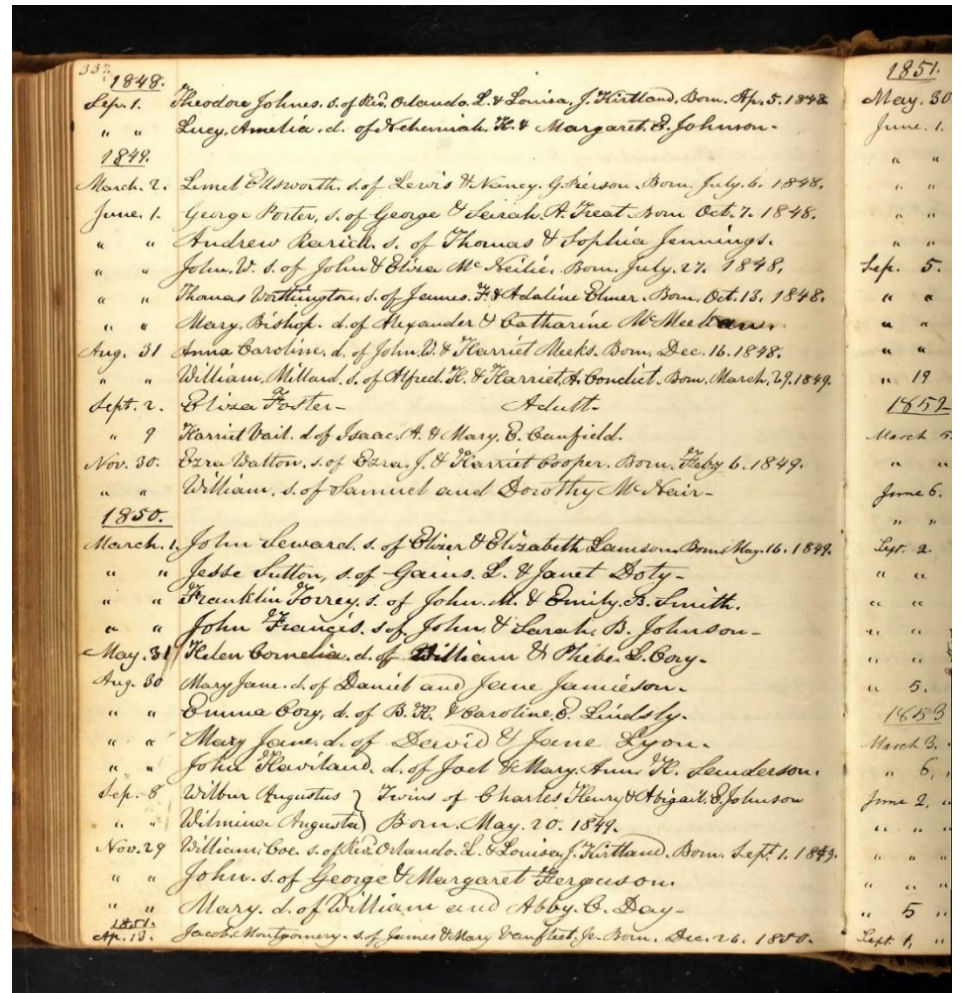 337.
1848.
Sep. 1. Theodore Johnes. s. of Rev. Orlando. L. & Louisa. J. Kirtland. Born. Ap. 5. 1848.
" " Lucy. Amelia. d. of Nehemiah. H. & Margaret. E. Johnson-
1849.
March. 2. Ellsworth. s. of Lewis & Nancy. G. Pierson. Born. July. 6. 1848.
June. 1. George Porter, s. of George & Sarah. A. Treat. Born Oct. 7. 1848.
" " Andrew Rarick. s. of Thomas & Sophia Jennings.
" " John. W. s. of John & Eliza Mc Neilie. Born. July. 27. 1848.
" " Thomas Worthington. s. of James. F. & Adaline Elmer. Born. Oct. 13. 1848.
" " Mary. Bishop. d. of Alexander & Catharine McMeekan.
Aug. 31 Anna Caroline. d. of John. W. & Harriet Meeks. Born, Dec. 16. 1848.
" " William. Millard. s. of Alfred. H. & Harriet, A. Condict. Born. March. 29. 1849.
Sept. 2. Eliza Foster- Adult-
" 9 Harriet Vail. d. of Isaac. A. & Mary. E. Canfield.
Nov. 30. Ezra Walton. s. of Ezra. J. & Harriet Cooper. Born. Feby 6. 1849.
" " William. s. of Samuel and Dorothy McNair-
1850.
March. 1. John Seward. s. of & Elizabeth Lamson. Born. May. 16. 1849.
" " Jesse Sutton, s. of Gaius. L. & Janet Doty-
" " Franklin Torrey. s. of John. M. & Emily. B. Smith.
" " John Francis. s. of John & Sarah. B. Johnson-
May. 31 Helen Cornelia. d. of William & Phebe. L. Cory-
Aug. 30 Mary Jane. d. of Daniel and Jane Jamieson.
" " Emma Cory, d. of B. H. & Caroline. E. Lindsly.
" " Mary Jane. d. of David & Jane Lyon.
" " John Haviland. d. of Joel & Mary. Ann. H. Senderson.
Sep. 8 Wilbur Augustus } Twins of Charles Henry & Abigail. E. Johnson
" " Wilmina Augusta } Born. May. 20. 1849.
Nov. 29 William. Coe. s. of Rev. Orlando. L. & Louisa. J. Kirtland. Born. Sept. 1. 1849.
" " John. s. of George & Margaret Ferguson.
" " Mary. d. of William and Abby. C. Day-
1851.
Ap. 13. Jacob. Montgomery. s. of James & Mary Vanfleet. Born. Dec. 26. 1850.
1851.
May. 30
June. 1.
" "
" "
" "
" "
Sep. 5.
" "
" "
" "
" 19
1852
March 5.
" "
June 6.
" "
Sept. 2.
" "
" "
" "
" "
" 5.
1853
March 3.
" 6.
June 2, "
" " "
" " "
" " "
" 5 "
Sept. 1, "